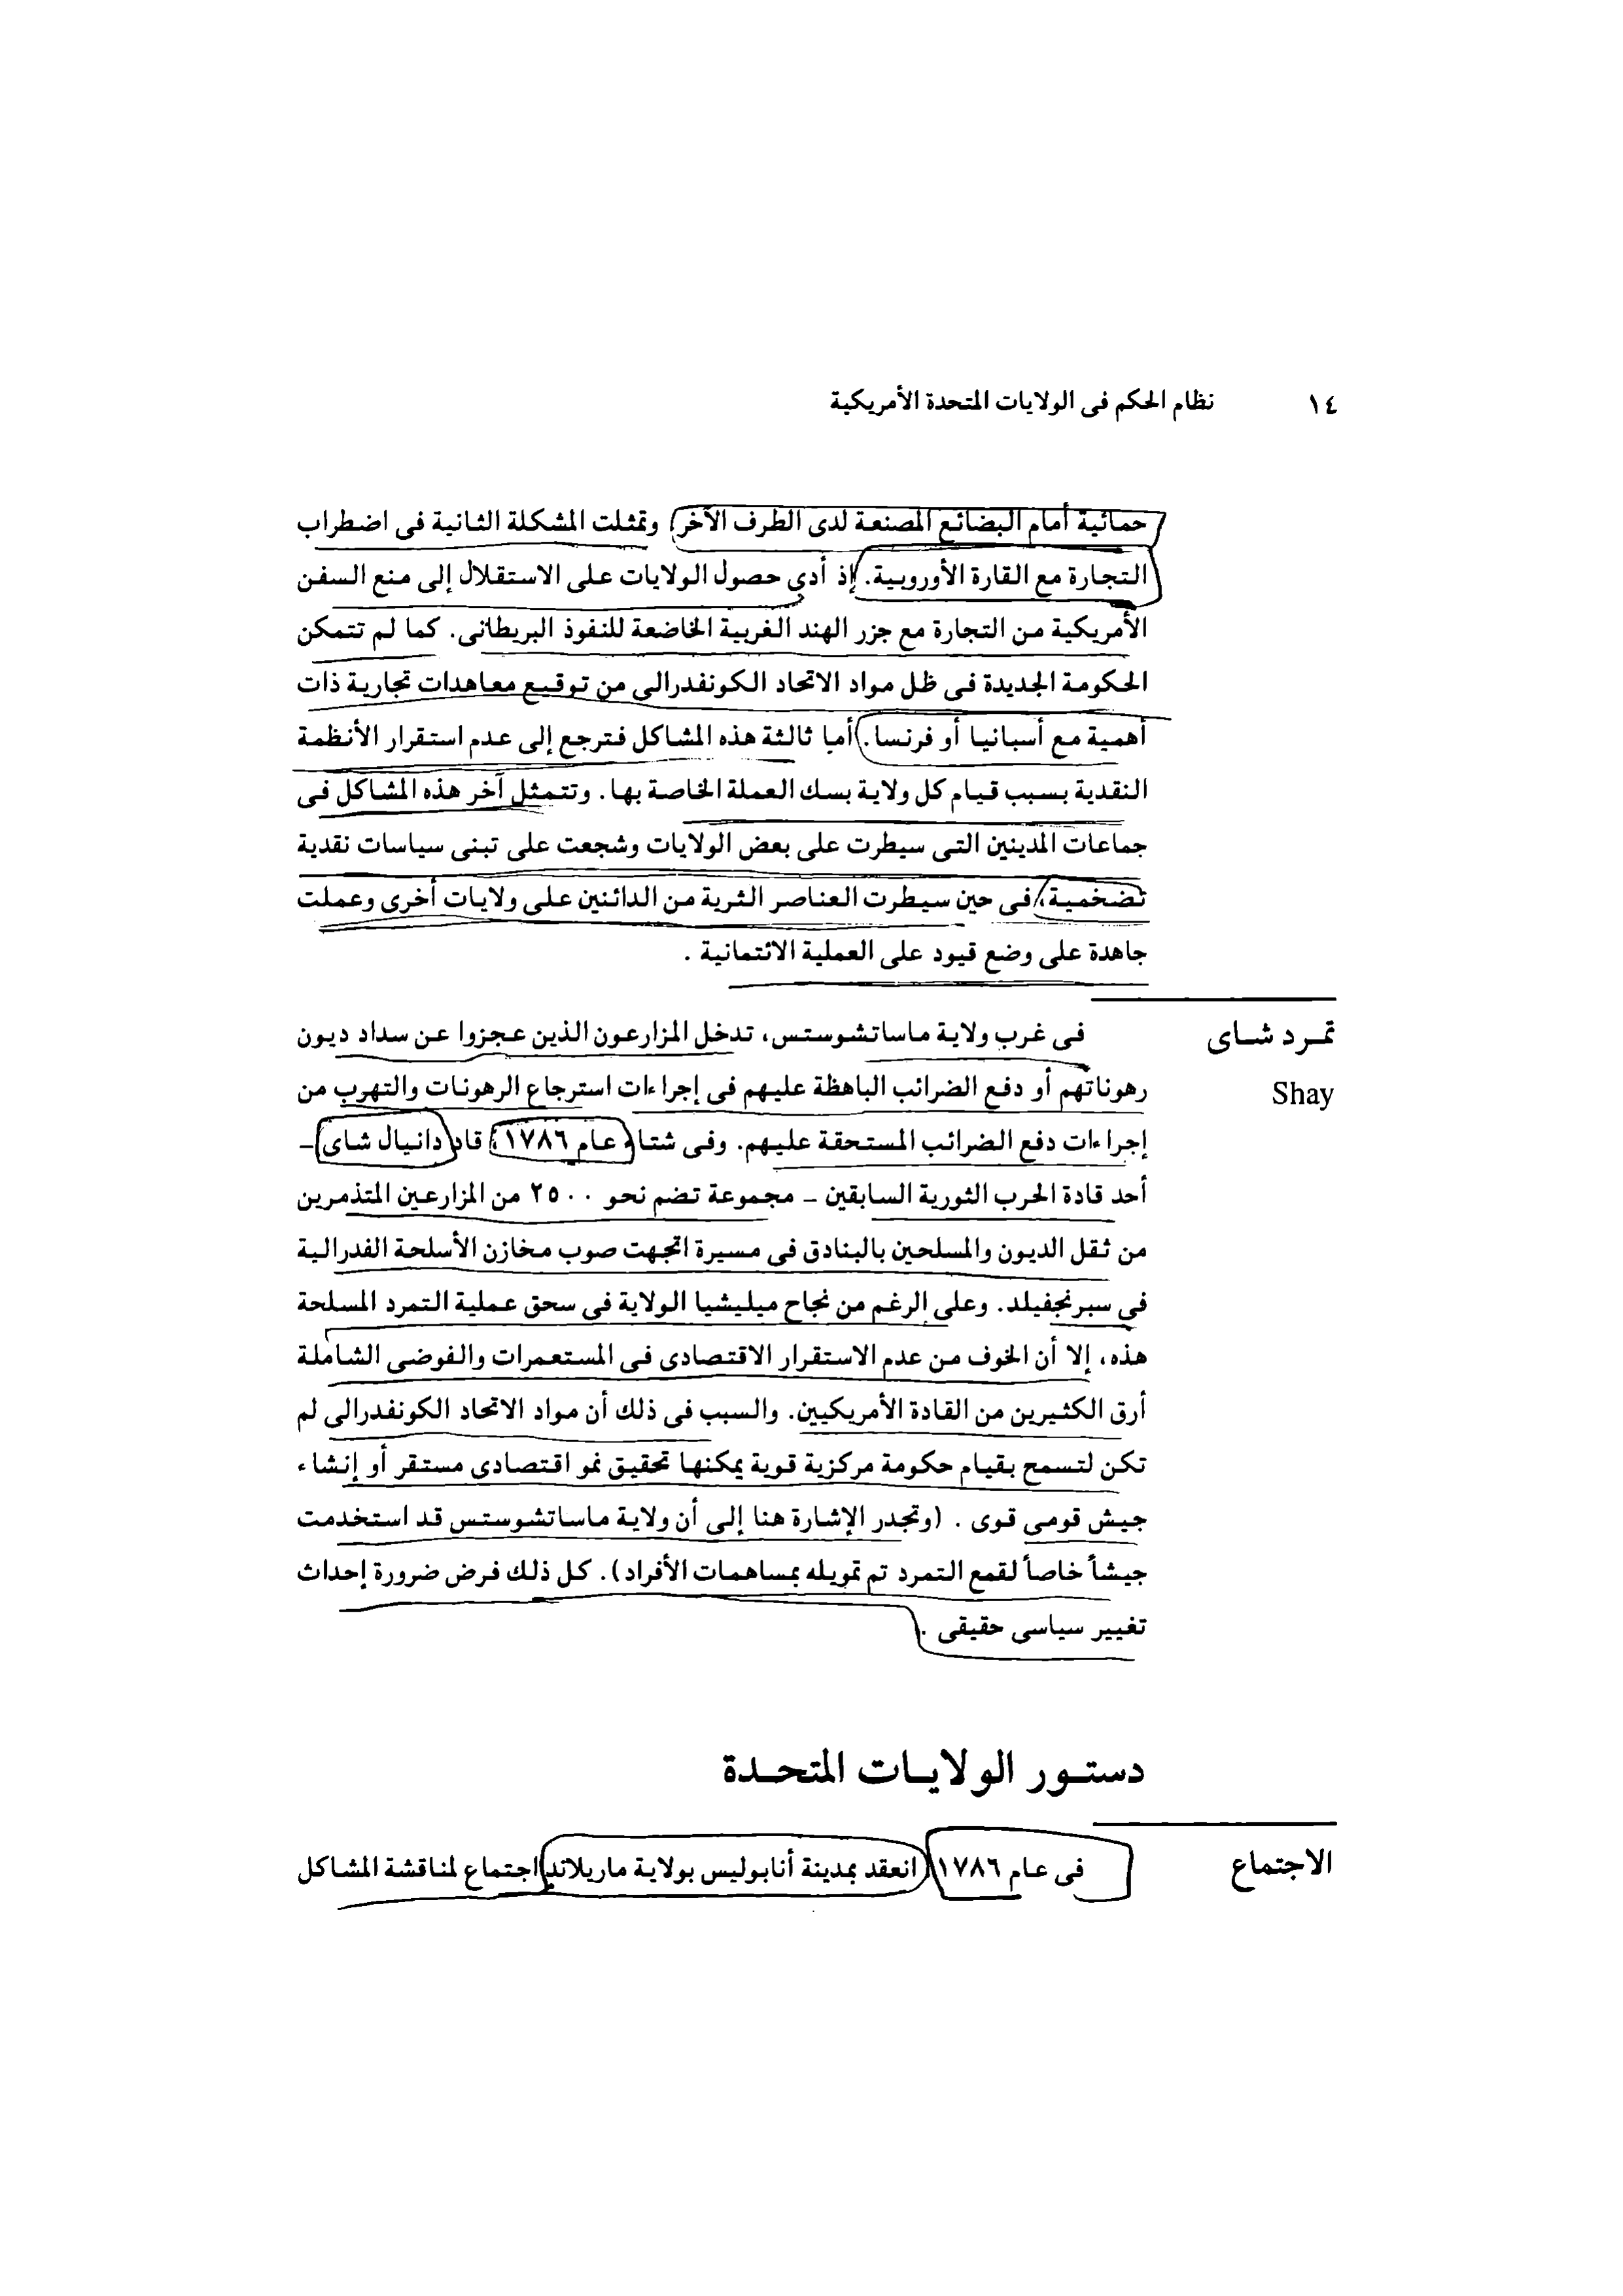 ١٤ نظام الحكم فى الولايات المتحدة الأمريكية
حمائية أمام البضائع المصنعة لدى الطرف الآخر، وتمثلت المشكلة الثانية فى اضطراب
التجارة مع القارة الأوروبية. إذ أدى حصول الولايات على الاستقلال إلى منع السفن
الأمريكية من التجارة مع جزر الهند الغربية الخاضعة للنفوذ البريطانى. كما لم تتمكن
الحكومة الجديدة فى ظل مواد الاتحاد الكونفدرالى من توقيع معاهدات تجارية ذات
أهمية مع أسبانيا أو فرنسا. أما ثالثة هذه المشاكل فترجع إلى عدم استقرار الأنظمة
النقدية بسبب قيام كل ولاية بسك العملة الخاصة بها. وتتمثل آخر هذه المشاكل فى
جماعات المدينين التى سيطرت على بعض الولايات وشجعت على تبنى سياسات نقدية
تضخمية، فى حين سيطرت العناصر الثرية من الدائنين على ولايات أخرى وعملت
جاهدة على وضع قيود على العملية الائتمانية .
تمرد شاى
Shay
فى غرب ولاية ماساتشوستس، تدخل المزارعون الذين عجزوا عن سداد ديون
رهوناتهم أو دفع الضرائب الباهظة عليهم فى إجراءات استرجاع الرهونات والتهرب من
إجراءات دفع الضرائب المستحقة عليهم. وفى شتاء عام ١٧٨٦، قاد دانيال شاى –
أحد قادة الحرب الثورية السابقين – مجموعة تضم نحو ٢٥٠٠ من المزارعين المتذمرين
من ثقل الديون والمسلحين بالبنادق فى مسيرة اتجهت صوب مخازن الأسلحة الفدرالية
فى سبرنجفيلد. وعلى الرغم من نجاح ميليشيا الولاية فى سحق عملية التمرد المسلحة
هذه، إلا أن الخوف من عدم الاستقرار الاقتصادى فى المستعمرات والفوضى الشاملة
أرق الكثيرين من القادة الأمريكيين. والسبب فى ذلك أن مواد الاتحاد الكونفدرالى لم
تكن لتسمح بقيام حكومة مركزية قوية يمكنها تحقيق نمو اقتصادى مستقر أو إنشاء
جيش قومى قوى . (وتجدر الإشارة هنا إلى أن ولاية ماساتشوستس قد استخدمت
جيشاً خاصاً لقمع التمرد تم تمويله بمساهمات الأفراد). كل ذلك فرض ضرورة إحداث
تغيير سياسى حقيقى .
دستور الولايات المتحدة
الاجتماع
فى عام ١٧٨٦، انعقد بمدينة أنابوليس بولاية ماريلاند اجتماع لمناقشة المشاكل